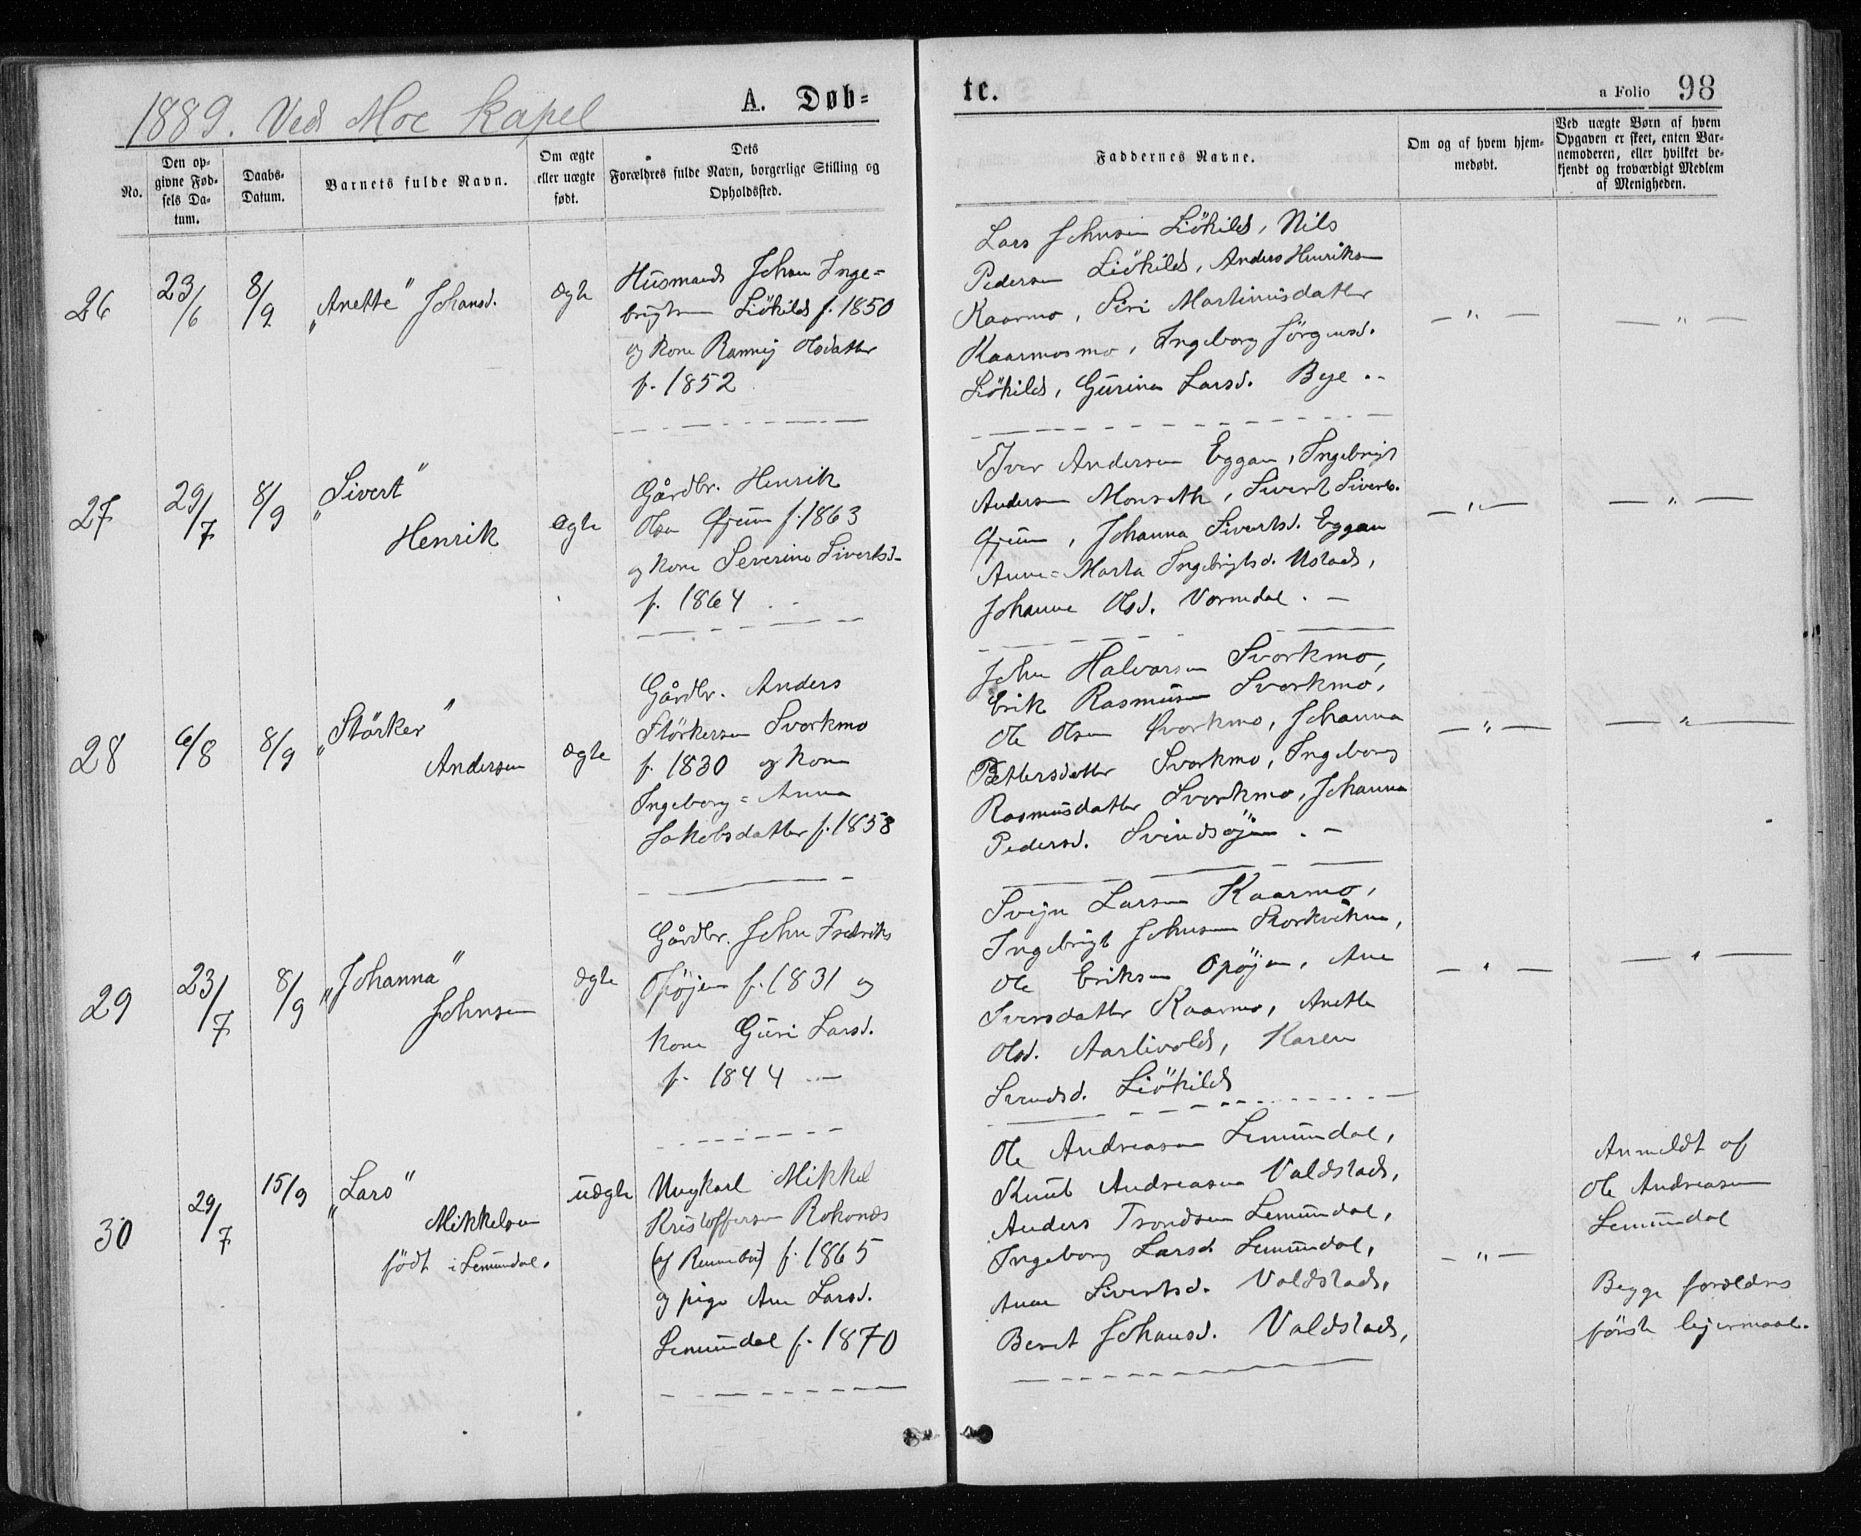 1889. Ved Moe Kapel
A. Døb=
te.
a Folio 98
No.
Den op-
givne Fød-
sels Da-
tum.
Daabs-
Datum.
Barnets fulde Navn.
Om ægte
eller uægte
født.
Dets
Forældres fulde Navn, borgerlige Stilling og
Opholdssted.
Faddernes Navne.
Om og af hvem hjem-
medøbt.
Ved uægte Børn af hvem
Opgaven er skeet, enten Bar-
nemoderen, eller hvilket be-
kjendt og troværdigt Medlem
af Menigheden.
26
23/6
8/9
"Anette" Johansd.
ægte
Husmand Johan Inge=
brigtsen Liökild f. 1850
og kone Rannej Olsdatter
f. 1852
Lars Johnsen Liökild, Nils
Pedersen Liökild, Anders Henriksen
Kaarmo, Siri Martinusdatter
Kaarmosmo, Ingeborg Jörgensd.
Liökild, Gurina Larsd. Bye.
— " —
— " —
27
29/7
8/9
"Sivert"
Henrik
ægte
Gårdbr. Henrik
Olsen f. 1863
og kone Severine Sivertsd.
f. 1864
Iver Andersen Eggan, Ingebrigt
Andersen Monseth, Sivert Siverts.
Johanna Sivertsd. Eggan
Anne=Marta Ingebrigtsd. Ustad,
Johanne Olsd. Vormdal. —
— " —
— " —
28
6/8
8/9
"Störker"
Andersen
ægte
Gårdbr. Anders
Störkersen Svorkmo
f. 1830 og kone
Ingeborg=Anna
Jakobsdatter f. 1853
John Halvorsen Svorkmo,
Erik Rasmusen Svorkmo,
Ole Olsen Svorkmo, Johanna
Pettersdatter Svorkmo, Ingeborg
Rasmusdatter Svorkmo, Johanna
Pedersd. Svindsöjen. —
— " —
— " —
29
23/7
8/9
"Johanna"
Johnsen
ægte
Gårdbr. John Fredriks
Opöjen f. 1831 og
kone Guri Larsd.
f. 1844 —
Svejn Larsen Kaarmo,
Ingebrigt Johnsen Storkvikna,
Ole Eriksen Opöjen, Ane
Iversdatter Kaarmo, Anette
Olsd. Aarlivold, Karen
Svendsd. Liökild
— " —
— " —
30
29/7
15/9
"Lars"
Mikkelsen
födt i Lemundal.
uægte
Ungkarl Mikkel
Kristoffersen Rokones
(af Rennebu) f. 1865
og pige Ane Larsd.
Lemundal f. 1870
Ole Andreasen Lemundal,
Knut Andreasen Valdstad,
Anders Trondsen Lemundal,
Ingeborg Larsd. Lemundal,
Anne Sivertsd. Valdstad,
Beret Johansd. Valdstad,
— " —
Anmeldt af
Ole Andreasen
Lemundal
Begge forældres
förste lejermaal.